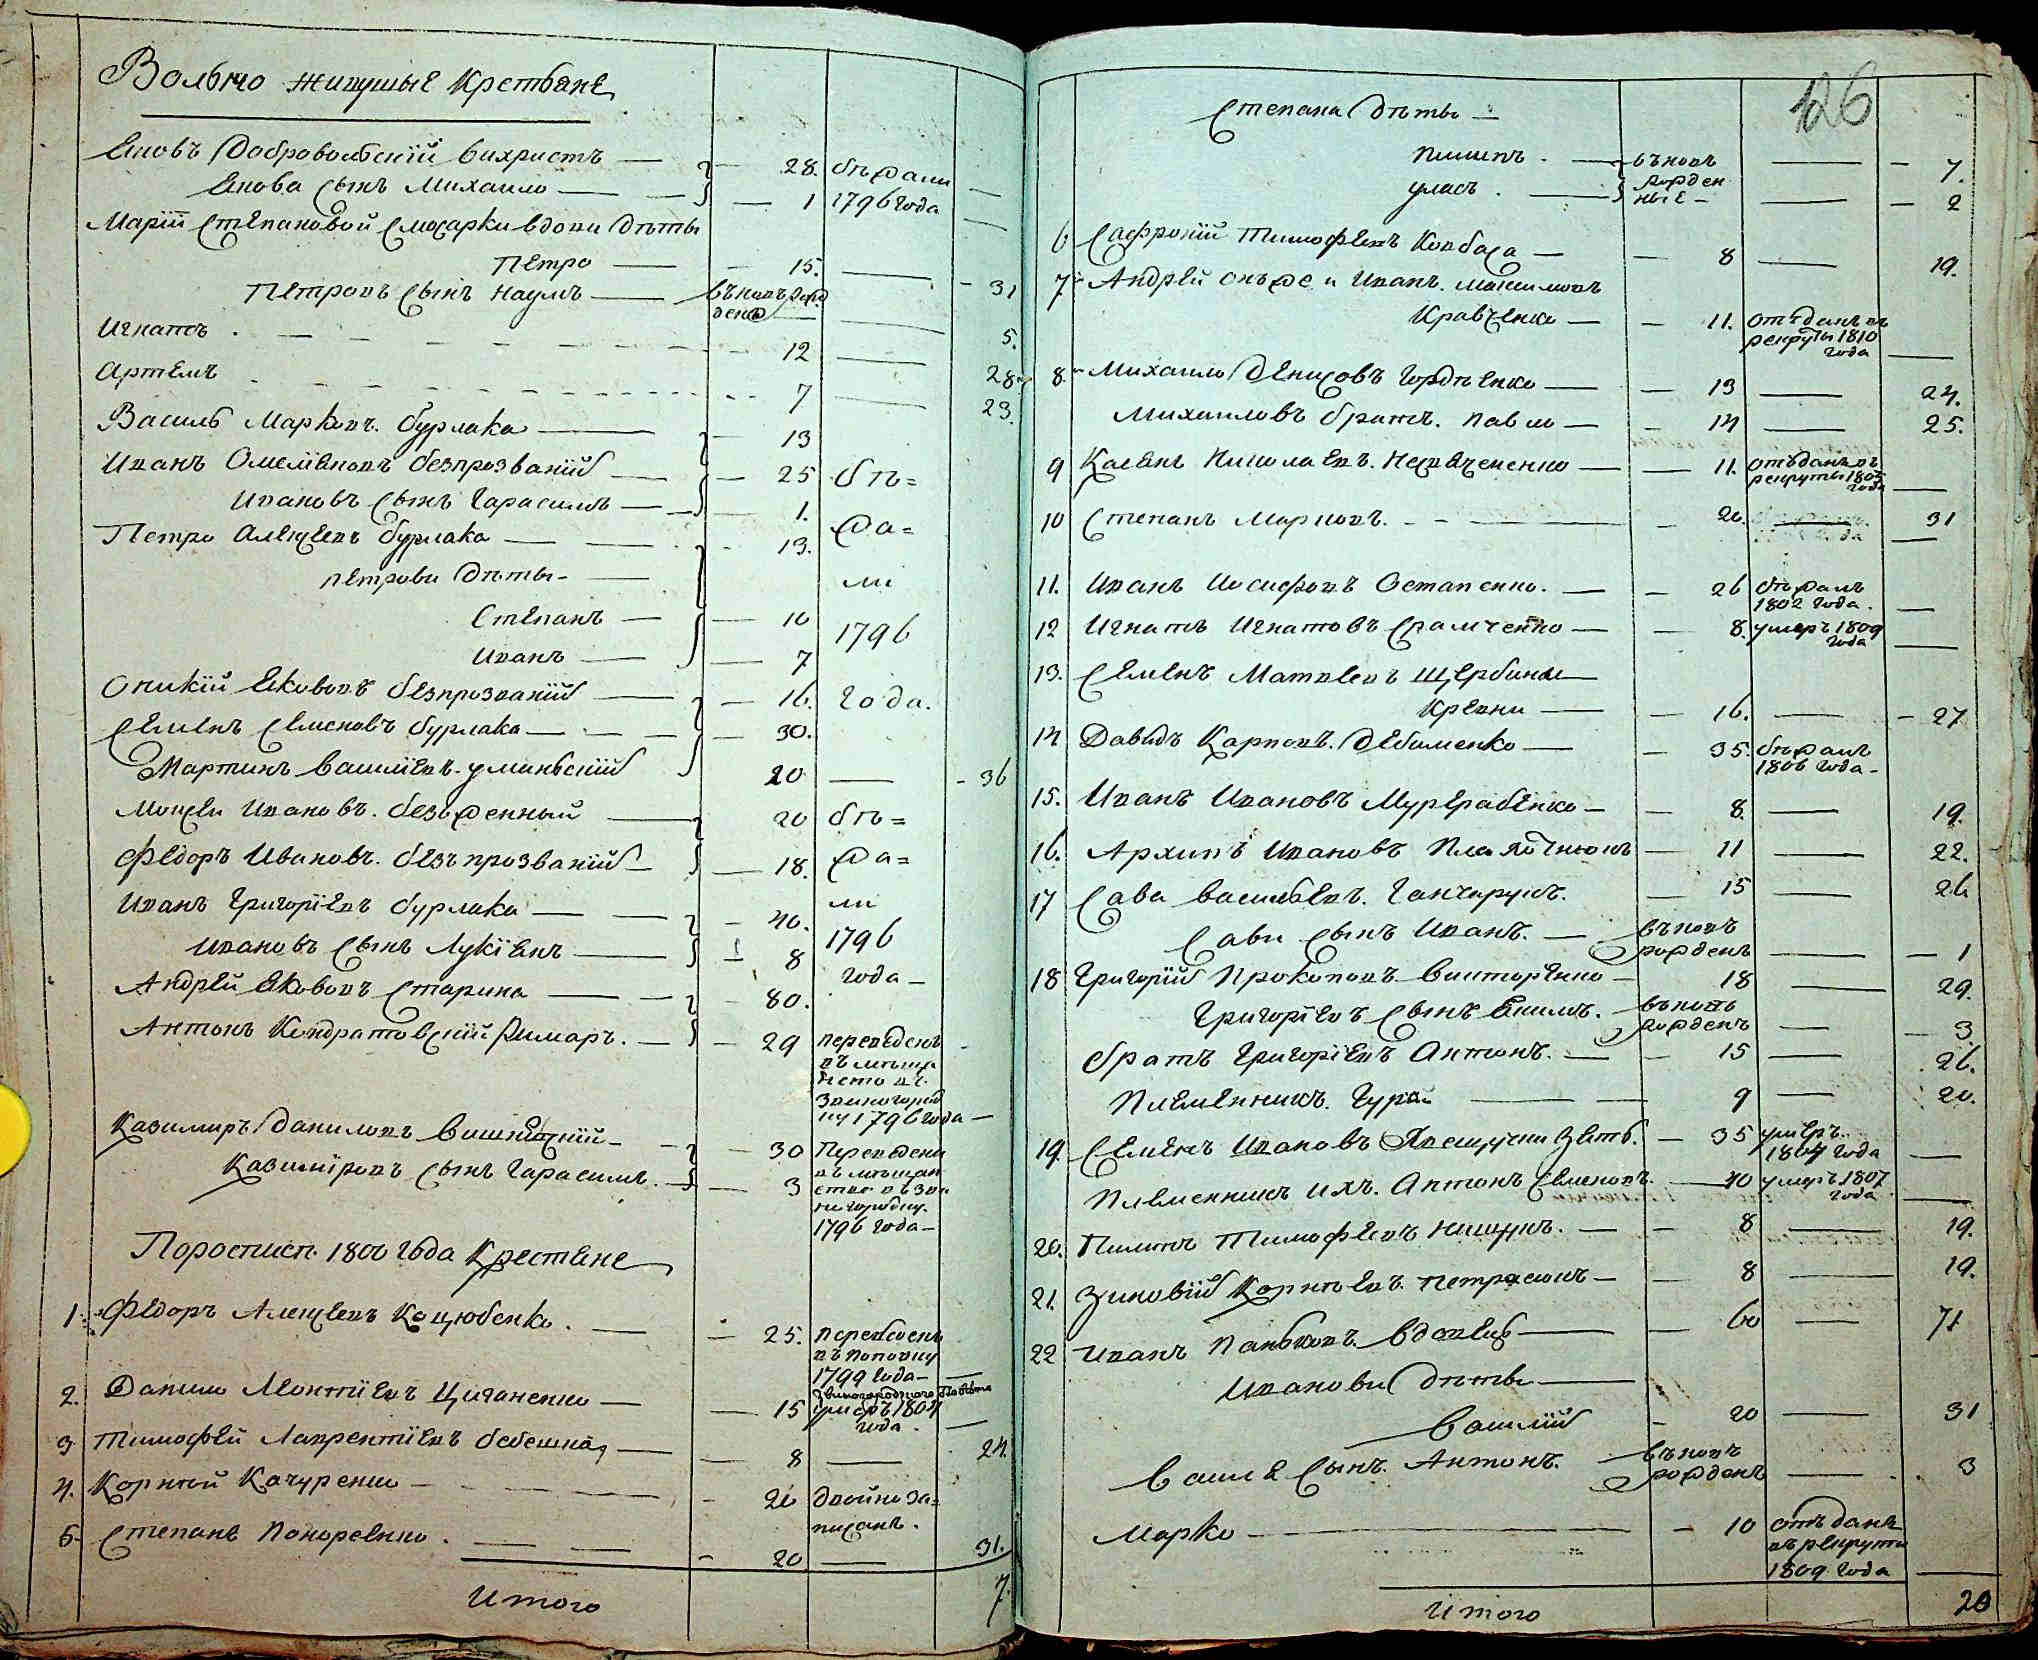 Волно живущые Крестьяне
Яковъ Добровольскій вихристъ — 28. бѣжали
Якова сынъ Михаило — 1 1796 года —
Маріи Степановой Слюсарки вдови дѣты
Петро — 15. — 31
Петровъ сынъ Наумъ — въновъ рож
денъ — 5.
Игнатъ — 12 — 28
Артемъ — 7 — 23.
Василь Марковъ Бурлака — 13
Иванъ Омеліяновъ безпрозваній — 25 бѣ=
Ивановъ сынъ Гарасимъ — 1.
Петро Алексѣевъ бурлака — 13. жа=
петрови дѣты — ли
Степанъ — 10 1796
Иванъ — 7
Оникій Якововъ безпрозваній — 16. года.
Семенъ Семеновъ бурлака — 30.
Мартинъ Василіевъ уманьскій 20 — 36
Иванов. 20 бѣ=
Федоръ Ивановъ безъпрозваній — 18. жа=
Иванъ Григоріевъ бурлака — 40. ли
Ивановъ сынъ Лукіянъ — 8 1796
Андрей Якововъ Старина — 80. года —
Антонъ Кондратовскій Римаръ. — 29 переведенъ
въ мѣща
нство въ
Звиногород
ку 1796 года —
Казимиръ Даниловъ Вишневскій — 30 Переведени
Казиміровъ сынъ Гарасимъ. — 3 въ мѣщан
ство въ Зви
ногородку.
1796 года —
Поросписи 1800 года Крестяне
1. Федоръ Алексѣевъ Коцюбенко. — 25. переведенъ
въ Поповку
1799 года —
Звиногородского повѣта
2. Данило Леонтіевъ Циганенко — 15 умеръ 1804
года. —
3 Тимофей Лаврентіевъ — 8 — 24.
4. Корній Качуренко — 20 двойно за=
писанъ.
5. Степанъ Понореенко. — 20 — 31.
Итого 7.
126
Степана дѣты —
Пилипъ. — въновъ — 7.
уласъ. — рожден
ныѣ — 2
6 Сафроній Тимофѣевъ Ковбаса — 8 — 19.
7 Андрей онъже и Иванъ Максимовъ
Кравченко — 11. отъданъ въ
рекруты 1810
года —
8. Михаило Денисовъ Гордѣенко — 13 — 24.
Михаиловъ братъ. Павло — 14 — 25.
9 Касянъ Николаевъ — 11. отъданъ въ
рекруты 1805
года —
10 Степанъ Марковъ. — 20. — 31
11. Иванъ Иосифовъ Остапенко. — 26 бѣжалъ
1802 года. —
12 Игнатъ Игнатовъ — 8. умеръ 1809
года —
13. Семенъ Матвеевъ Щербини
— 16. — 27
14 Давидъ Карповъ. — 35. бѣжалъ
1806 года —
15. Иванъ Ивановъ — 8. — 19.
16. Архипъ Ивановъ — 11 — 22.
17 Сава Васильевъ. Ганчарукъ. — 15 — 26
Сави сынъ Иванъ. — въновъ
рожденъ — 1
18 Григорій Прокоповъ Викторенко — 18 — 29.
Григоріевъ сынъ Якимъ. — въновь
рожденъ — 3
братъ Григоріевъ Антонъ. — 15 — 26.
Племенникъ. Гурай — 9 — 20.
19. Семенъ Ивановъ зять. — 35 умеръ
1807 года —
Племенникъ ихъ. Антонъ Семеновъ. — 40 умеръ 1807
года —
20. Тимофѣевъ — 8 — 19.
21. Зиновій Корнѣевъ. Петрасюкъ — 8 — 19.
22 Иванъ Паньковъ. Вдовецъ — 60 — 71
Иванови дѣты —
Василій — 20 — 31
Василя сынъ. Антонъ. — въновъ
рожденъ — 3
Марко — 10 отъданъ
въ рекруты
1809 года —
Итого 20